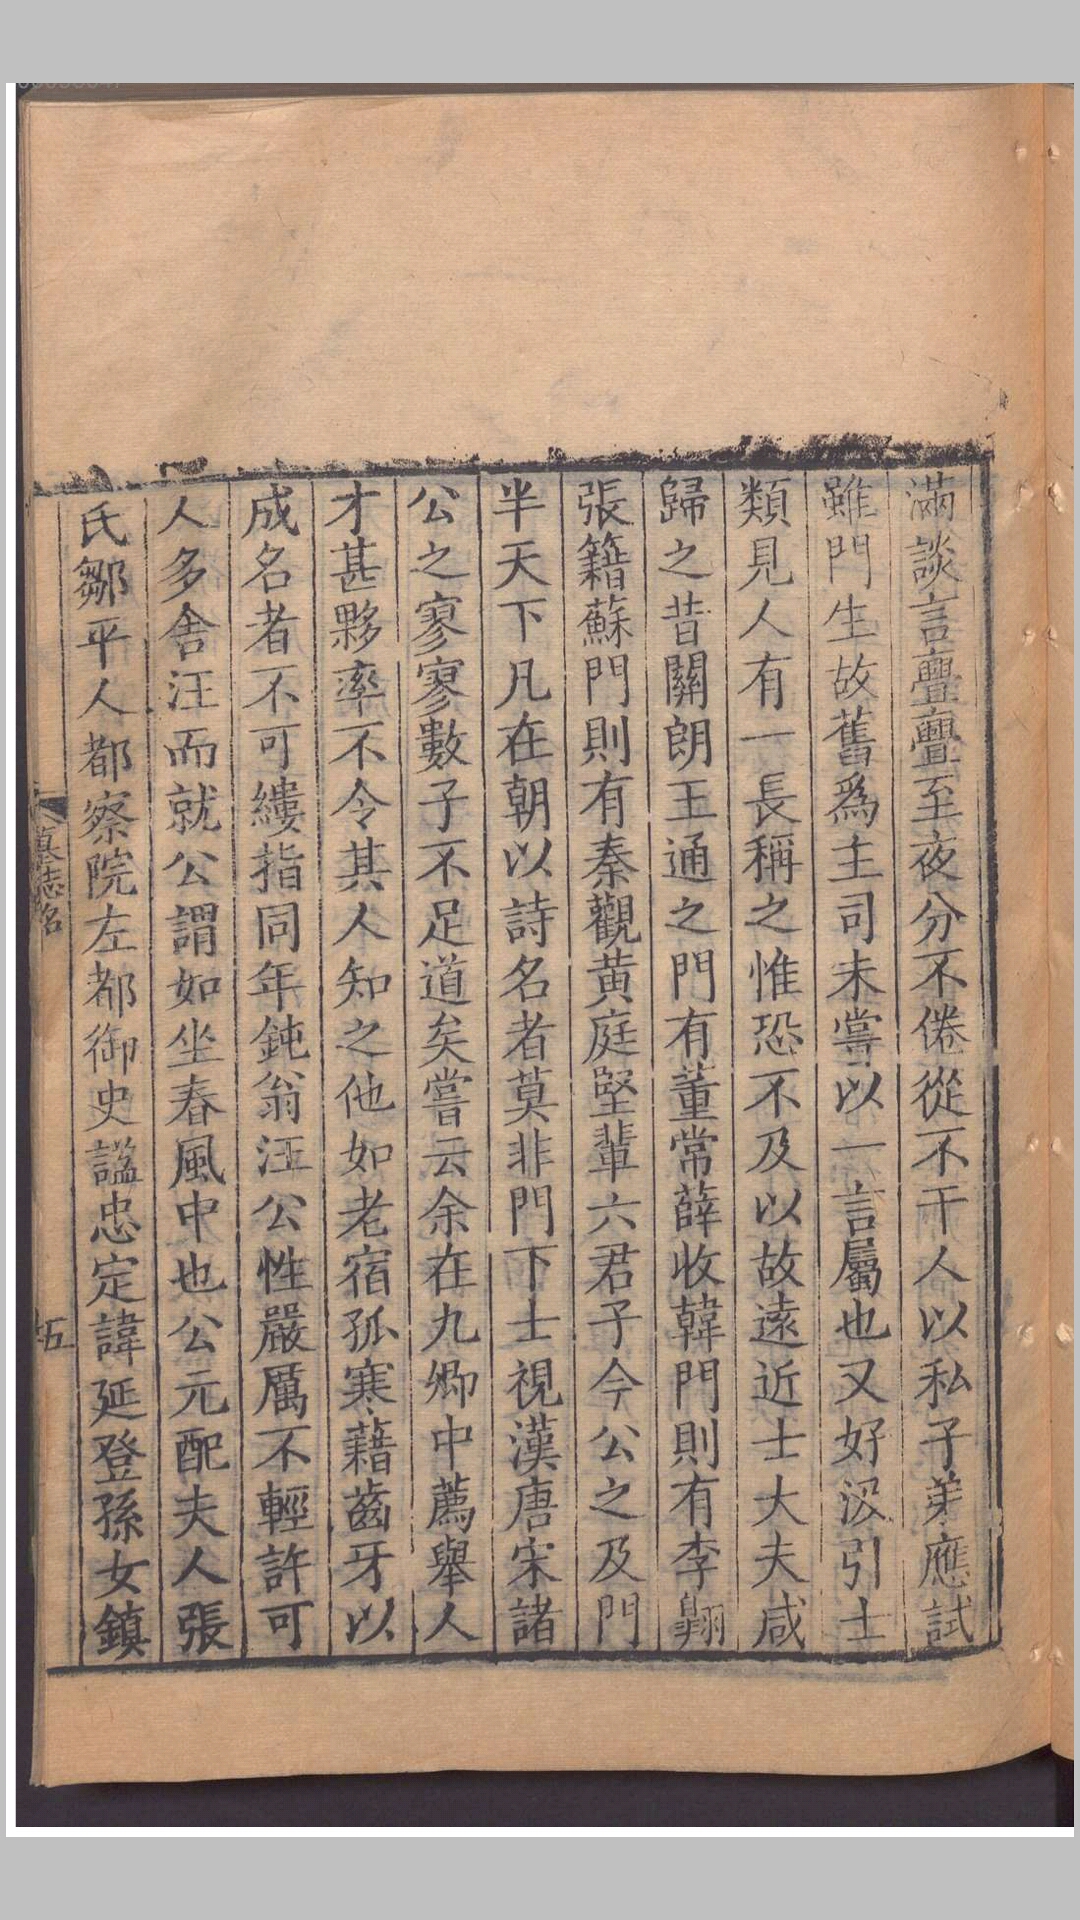 滿談言亹亹至夜分不倦從不干人以私子弟應試
雖門生故舊爲主司未嘗以一言屬也又好汲引士
類見人有一長稱之惟恐不及以故遠近士大夫咸
歸之昔關朗王通之門有董常薛收韓門則有李翺
張籍蘇門則有秦觀黃庭堅輩六君子今公之及門
半天下凡在朝以詩名者莫非門下士視漢唐宋諸
公之寥寥數子不足道矣嘗云余在九卿中薦舉人
才甚夥率不令其人知之他如老宿孤寒藉齒牙以
成名者不可縷指同年鈍翁汪公性嚴厲不輕許可
人多舍汪而就公謂如坐春風中也公元配夫人張
氏鄒平人都察院左都御史謚忠定諱延登孫女鎮
墓志銘
五